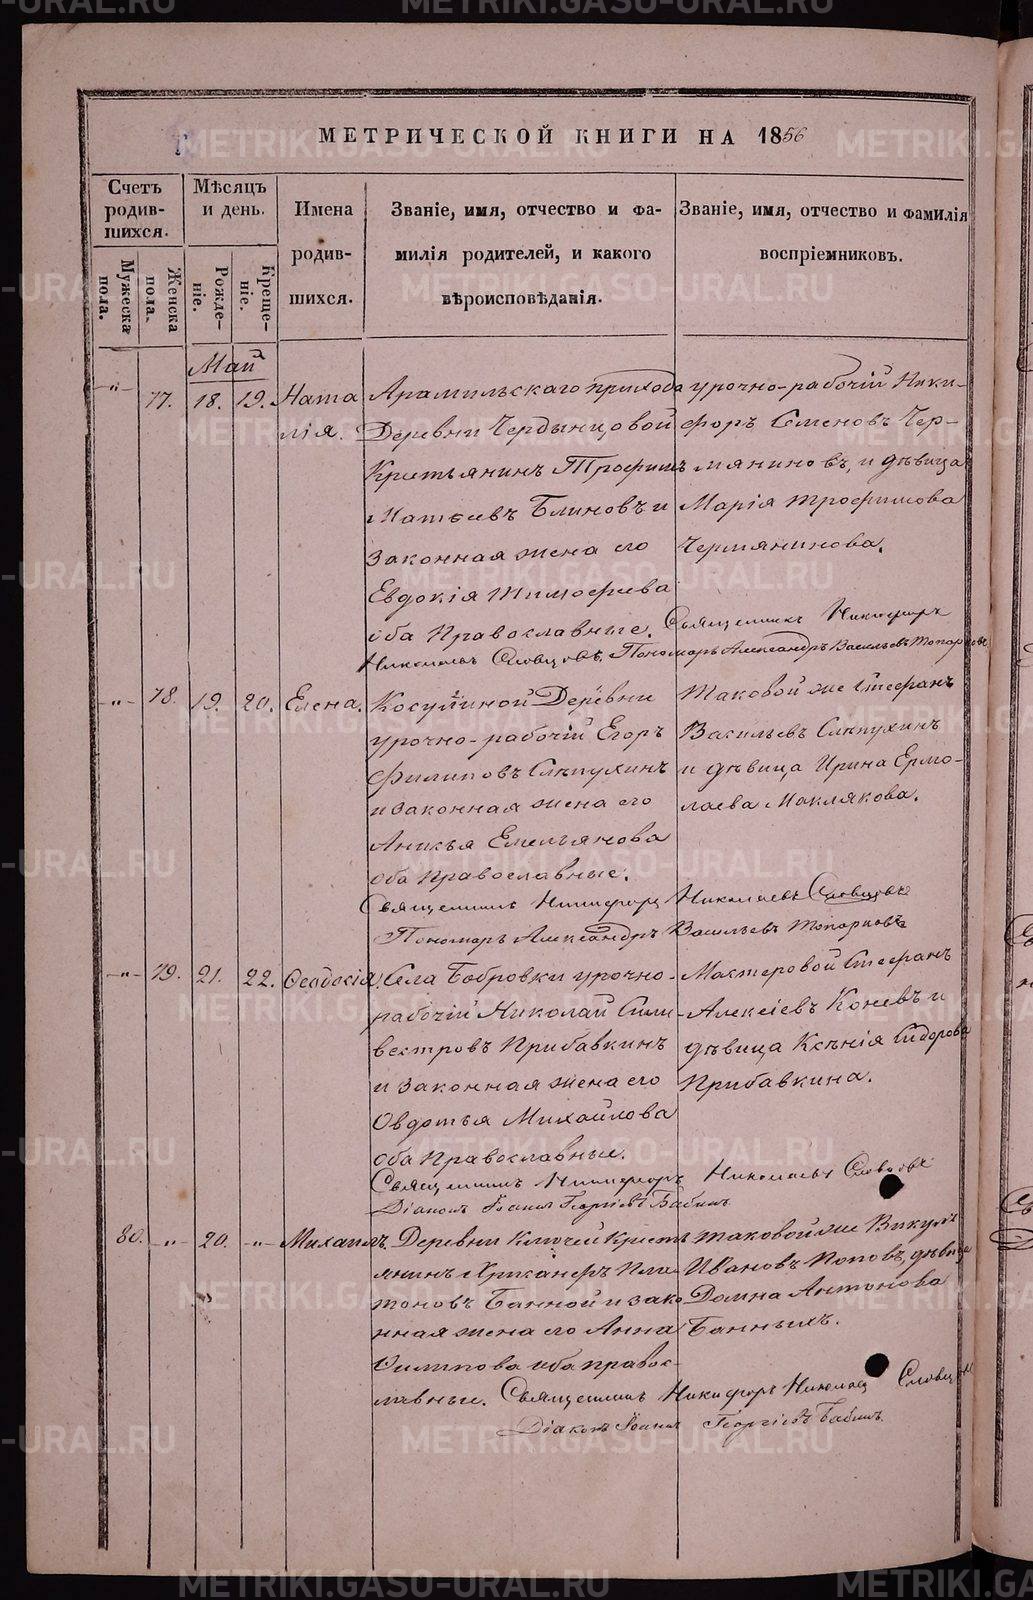 МЕТРИЧЕСКОЙ КНИГИ НА 1856
Счетъ родившихся.
Мужеска пола.
Женска пола.
Мѣсяцъ и день.
Рожденіе.
Крещеніе.
Имена родившихся.
Званіе, имя, отчество и фамилія родителей, и какого вѣроисповѣданія.
Званіе, имя, отчество и фамилія воспріемниковъ.
Май
-"- 77. 18. 19. Ната
лія.
Арамильскаго прихода
Деревни Чердынцовой
Крестьянинъ Трофимъ
Матѳеевъ Блиновъ и
законная жена его
Евдокія Тимофеева
оба Православные.
урочно-рабочій Ники-
форъ Семеновъ Чер-
мяниновъ, и дѣвица
Марія Трофимова
Чермянинова.
Священникъ Никифоръ
Николаевъ Словцовъ, Пономарь Александръ Васильевъ Топорковъ
-"- 78. 19. 20. Елена.
Косулиной Деревни
урочно-рабочій Егоръ
Филиповъ Слѣпухинъ
и законная жена его
Аникья Емельянова
оба Православные.
Таковой же Стефанъ
Васильевъ Слѣпухинъ
и дѣвица Ирина Ермо-
лаева Маклякова.
Священникъ Никифоръ Николаевъ Словцовъ
Пономарь Александръ Васильевъ Топорковъ
-"- 79. 21. 22. Ѳеодосія.
Села Бобровки урочно-
рабочій Николай Сили-
вестровъ Прибавкинъ
и законная жена его
Овдотья Михайлова
оба Православные.
Мастеровой Стефанъ
Алексіевъ Коневъ и
дѣвица Ксѣнія Сидорова
Прибавкина.
Священникъ Никифоръ Николаевъ Словцовъ
Діаконъ Іоаннъ Георгіевъ Бабинъ
80. -"- 20. -"- Михаилъ.
Деревни Ключей Кресть
янинъ Пла-
тоновъ Банной и зако
нная жена его Анна
Филипова оба право-
славные.
таковой же Викулъ
Ивановъ Поповъ, дѣвица
Домна Антонова
Банныхъ.
Священникъ Никифоръ Николаевъ Словцовъ
Діаконъ Іоаннъ Георгіевъ Бабинъ.
METRIKI.GASO-URAL.RU